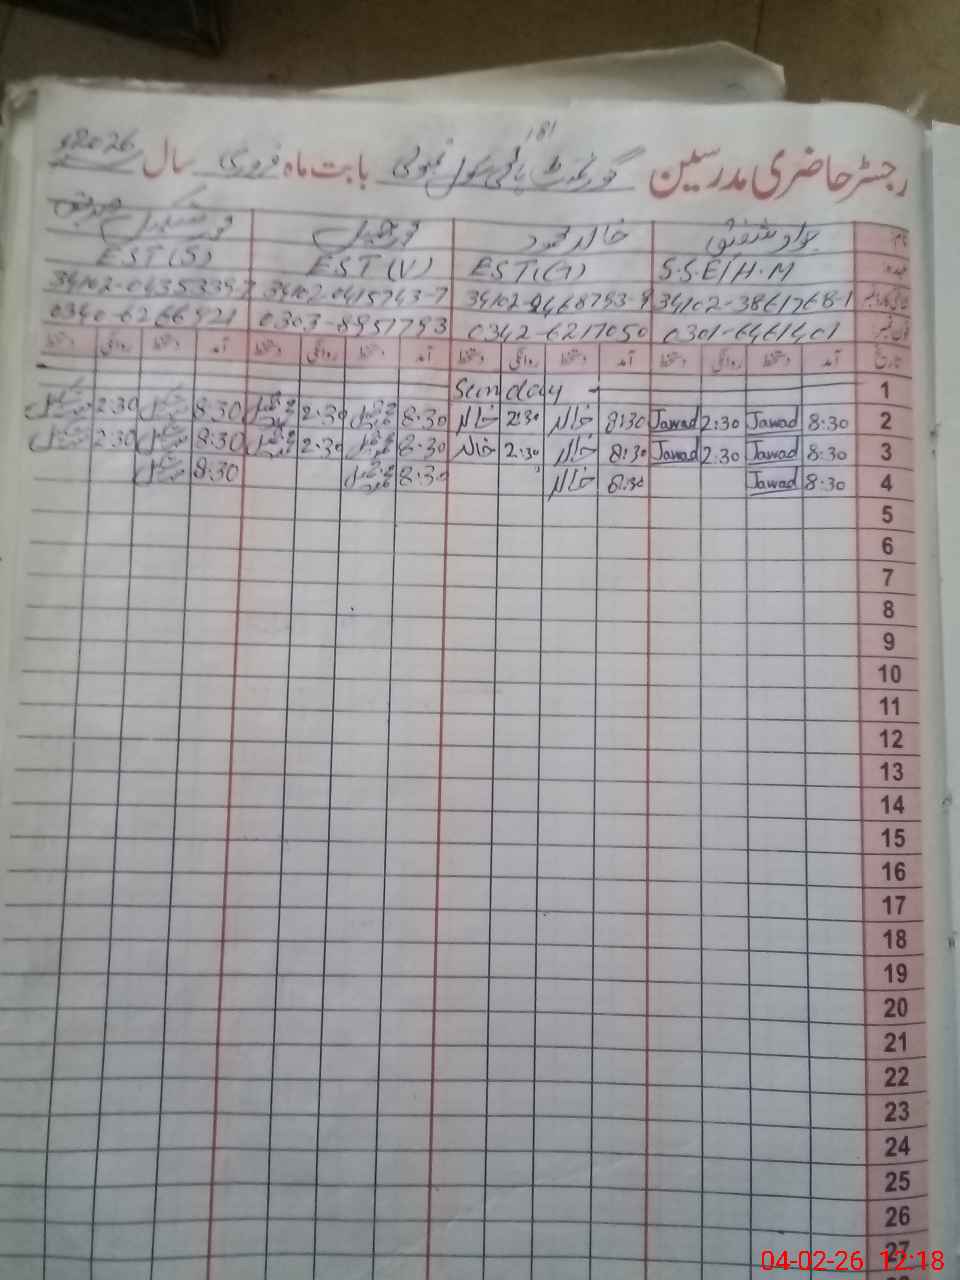 رجسٹر حاضری مدرسین گورنمنٹ ہائی سکول بابت ماہ فروری سال 2026ء
نام
خالد محمود محمد جمیل محمد شکیل
عہدہ S.S.E/H.M EST(G) EST(V) EST(S)
34102-3861768-1 34102-0415743-7
0301-6461401 0342-6217050 0303-8951793 0340-6266921
تاریخ آمد دستخط روانگی دستخط آمد دستخط روانگی دستخط آمد دستخط روانگی دستخط آمد دستخط روانگی دستخط
1 Sunday
2 8:30 Jawad 2:30 Jawad 8:30 خالد 2:30 خالد 8:30 2:30 8:30 2:30
3 8:30 Jawad 2:30 Jawad 8:30 خالد 2:30 خالد 8:30 2:30 8:30 2:30
4 8:30 Jawad 8:30 خالد 8:30 8:30
5
6
7
8
9
10
11
12
13
14
15
16
17
18
19
20
21
22
23
24
25
26
27
04-02-26 12:18